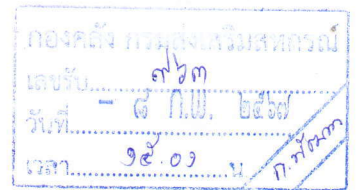 กองคลัง กรมส่งเสริมสหกรณ์
เลขรับ.....๙๖๓
วันที่ - ๘ ก.พ. ๒๕๖๗
เวลา.....๑๕.๐๑.....น